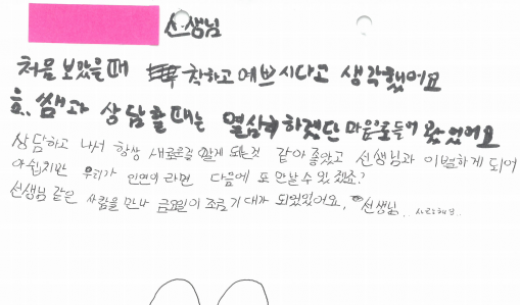 선생님
처음 보았을때 착하고 예쁘시다고 생각했어요
흠.. 쌤과 상담할때는 열심히 하겠단 마음으로들어 왔었어요
상담하고 나서 항상 새로운걸 알게 되는것 같아 좋았고 선생님과 이별하게 되어
아쉽지만 우리가 인연이라면 다음에 또 만날 수 있겠죠?
선생님 같은 사람을 만나 금요일이 조금 기대가 되었었어요. 선생님. 사랑해요.